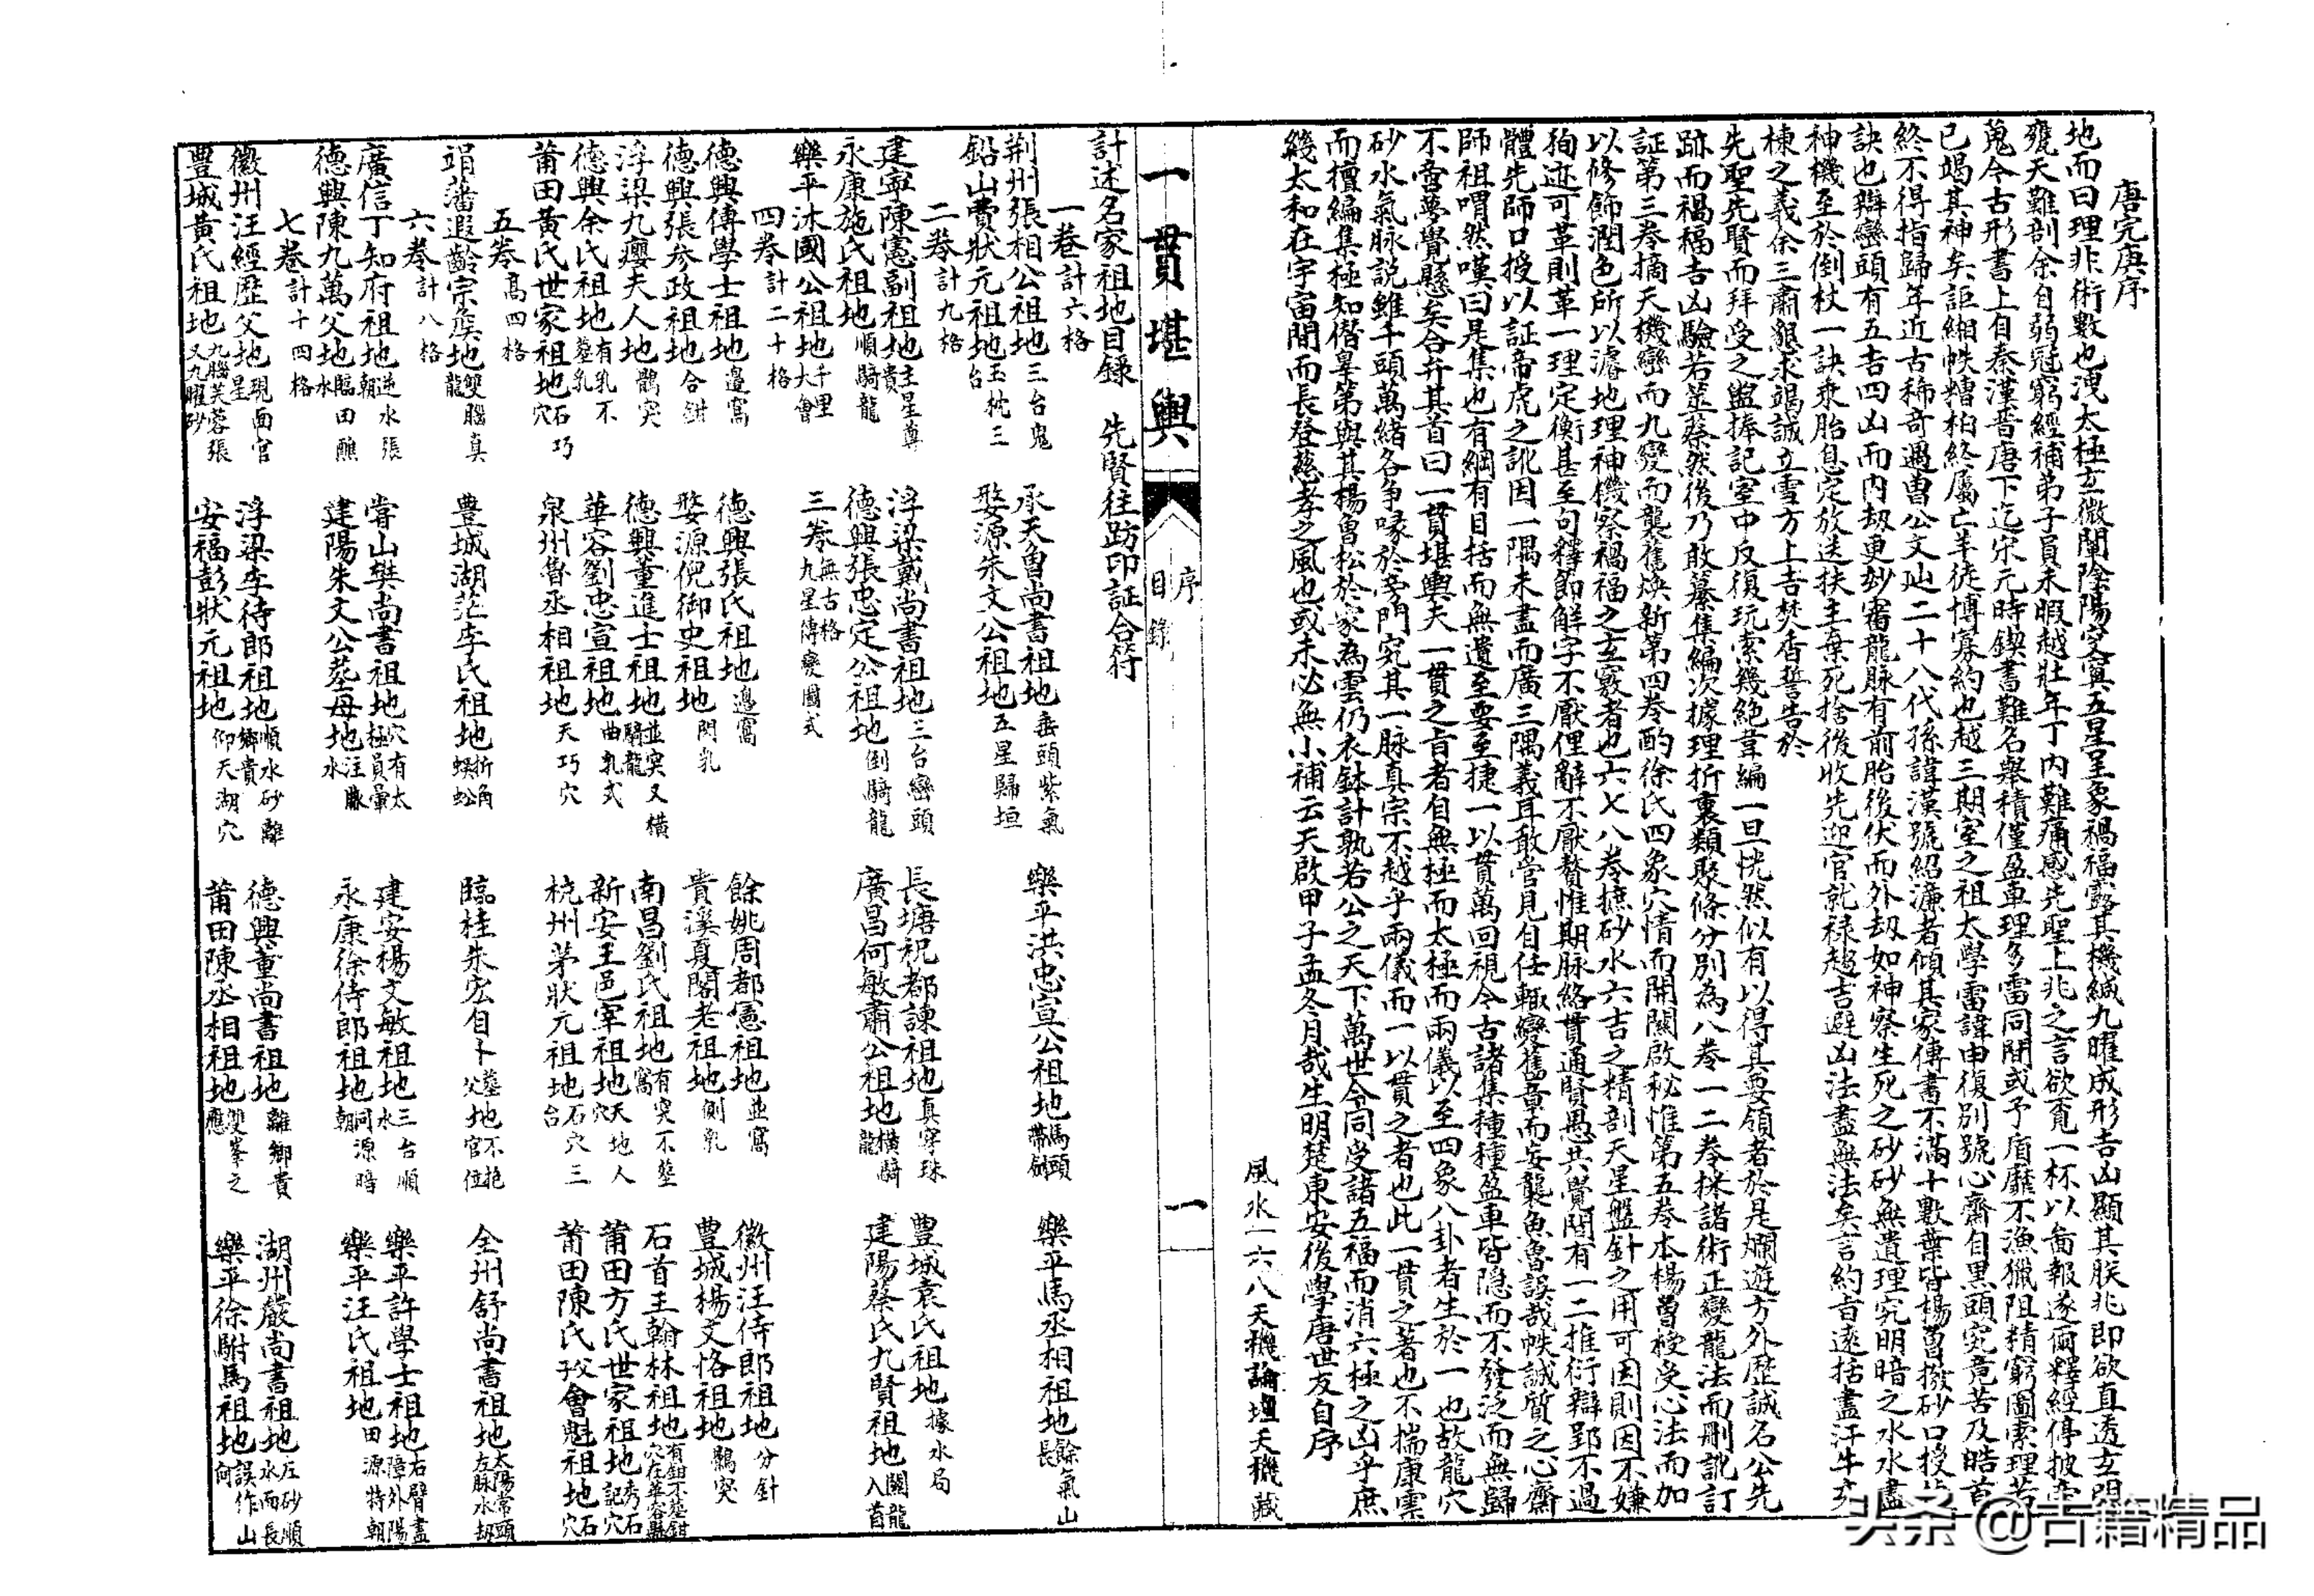 唐完庚序
地而曰理非術數也洩太極玄微闡陰陽突寞五星呈象禍福露其機緘九曜成形吉凶顯其朕兆即欲直透玄
甕天難剖余自弱冠窮經補弟子員未暇越壯年丁內難痛感先聖上兆之言欲覓一杯以啚報遂爾釋經停披
蒐今古形書上自秦漢晋唐下迄宋元時鍥書難名舉積僅盈車理多雷同間或予盾靡不漁獵阻精窮圖索理
已竭其神矣詎緗帙糟粕終屬亡羊徒博寡約也越三期室之祖太學雷諱申復別號心齋自黑頭究竟苦及皓首
終不得指歸年近古稀奇遇曹公文辿二十八代孫諱漢號紹濂者傾其家傳書不滿十數葉皆楊曾撥砂口授
訣也辯巒頭有五吉四凶而內刼更妙審龍脉有前胎後伏而外刼如神察生死之砂砂無遺理究明暗之水水盡
神機至於倒杖一訣乘胎息定放送扶主棄死捨後收先迎官就祿趨吉避凶法盡無法矣言約旨遠括盡汗牛充
棟之義余三肅懇求竭誠立雪方上吉焚香誓告於
先聖先賢而拜受之盥捧記室中反復玩索幾絕韋編一旦恍然似有以得其要領者於是爛遊方外歷誠名公先
跡而禍福吉凶驗若筮蔡然後乃敢纂集編次據理折衷類聚條分別為八卷一二卷採諸術正變龍法而刪訛訂
証第三卷摘天機巒而九變而襲舊煥新第四卷酌徐氏四象穴情而開關啟秘惟第五卷本楊曾授受心法而加
以修飾潤色所以濬地理神機察禍福之玄竅者也六七八卷摭砂水六吉之精剖天星盤針之用可因則因不嫌
狥迹可革則革一理定衡甚至句釋節解字不厭俚辭不厭贅惟期脉絡貫通賢愚共覺間有一二推衍辯郢不過
體先師口授以証帝虎之訛因一隅未盡而廣三隅義耳敢管見自任輒變舊章而妄襲魚魯誤哉帙誠質之心齋
師祖喟然嘆曰是集也有綱有目括而無遺至要至捷一以貫萬回視令古諸集種種盈車皆隐而不發泛而無歸
不啻夢覺懸矣合弁其首曰一貫堪輿夫一貫之旨者自無極而太極而兩儀以至四象八卦者生於一也故龍穴
砂水氣脉説雖千頭萬緒各争喙於旁門究其一脉真宗不越乎兩儀而一以貫之者也此一貫之著也不揣庸
而擅編集極知僭辠第與其楊曾松於家為雲仍衣鉢計孰若公之天下萬世令同受諸五福而消六極之凶乎庶
幾太和在宇宙間而長登慈孝之風也或未必無小補云天啟甲子孟冬月哉生明楚東安後學唐世友自序
風水一六八天機論壇天機藏
一貫堪輿
序
目錄
一
計述名家祖地目錄 先賢往跡印証合符
一卷計六格
荆州張相公祖地三台鬼 承天魯尚書祖地垂頭紫氣 樂平洪忠宣公祖地馬頭帶劍 樂平馬丞相祖地餘氣山長
鉛山費狀元祖地玉枕三台 婺源朱文公祖地五星歸垣
二卷計九格
建寧陳憲副祖地主星尊貴 浮梁戴尚書祖地三台巒頭 長塘祝都諫祖地真穿珠 豊城袁氏祖地據水局
永康施氏祖地順騎龍 德興張忠定公祖地倒騎龍 廣昌何敏肅公祖地橫騎龍 建陽蔡氏九賢祖地闗龍入首
樂平沐國公祖地千里大會 三卷無古格九星傳變圖式
四卷計二十格
德興傅學士祖地邉窩 德興張氏祖地邉窩 餘姚周都憲祖地並窩 徽州汪侍郎祖地分針
德興張參政祖地合鉗 婺源倪御史祖地閃乳 貴溪夏閣老祖地側乳 豊城楊文恪祖地鶻突
浮梁九癭夫人地鶻突 德興董進士祖地並突又橫騎龍 南昌劉氏祖地有突不塟窩 石首王翰林祖地有鉗不塟鉗穴在華容縣
德興余氏祖地有乳不塟乳 華容劉忠宣祖地曲乳式 新安王邑宰祖地天地人穴 莆田方氏世家祖地秀石記穴
莆田黃氏世家祖地石巧穴 泉州魯丞相祖地天巧穴 杭州茅狀元祖地石穴三台 莆田陳氏孜會魁祖地石穴
五卷高四格
靖藩遐齡宗矦地雙腦真龍 豊城湖茫李氏祖地折角蜈蚣 臨桂朱宏自卜塟地不艳父官位 全州舒尚書祖地太陽常頭左脉水刼
六卷計八格
廣信丁知府祖地逆水張朝 常山樊尚書祖地穴有太極員暈 建安楊文敏祖地三台順水 樂平許學士祖地右臂盡障外陽
德興陳九萬父地臨田醮水 建陽朱文公塟母地注脉水 永康徐侍郎祖地同源暗朝 樂平汪氏祖地田源特朝
七卷計十四格
徽州汪經歷父地現面官星 浮梁李待郎祖地順水砂離鄉貴 德興董尚書祖地離鄉貴 湖州嚴尚書祖地左砂順水而長
豊城黃氏祖地九腦芙蓉張又九曜砂 安福彭狀元祖地仰天湖穴 莆田陳丞相祖地雙峯之應 樂平徐駙馬祖地誤作山向
头条 @古籍精品